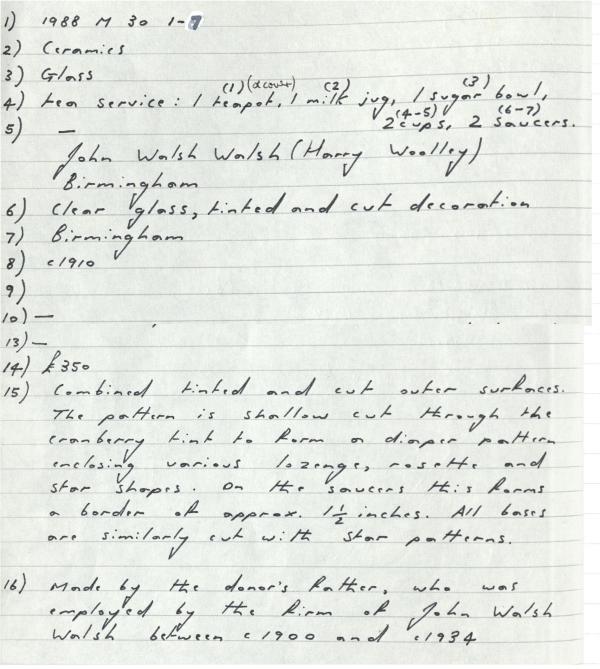 1) 1988 M 30 1-7
2) Ceramics
3) Glass
(1) (& cover) (2) (3)
4) tea service: 1 teapot, 1 milk jug, 1 sugar bowl,
(4-5) (6-7)
5) — 2 cups, 2 saucers.
John Walsh Walsh (Harry Woolley)
Birmingham
6) Clear glass, tinted and cut decoration
7) Birmingham
8) c1910
9)
10) —
13) —
14) £350
15) Combined tinted and cut outer surfaces.
The pattern is shallow cut through the
cranberry tint to form a diaper pattern
enclosing various lozenge, rosette and
star shapes. On the saucers this forms
a border of approx. 1½ inches. All bases
are similarly cut with star patterns.
16) Made by the donor's father, who was
employed by the firm of John Walsh
Walsh between c1900 and c1934